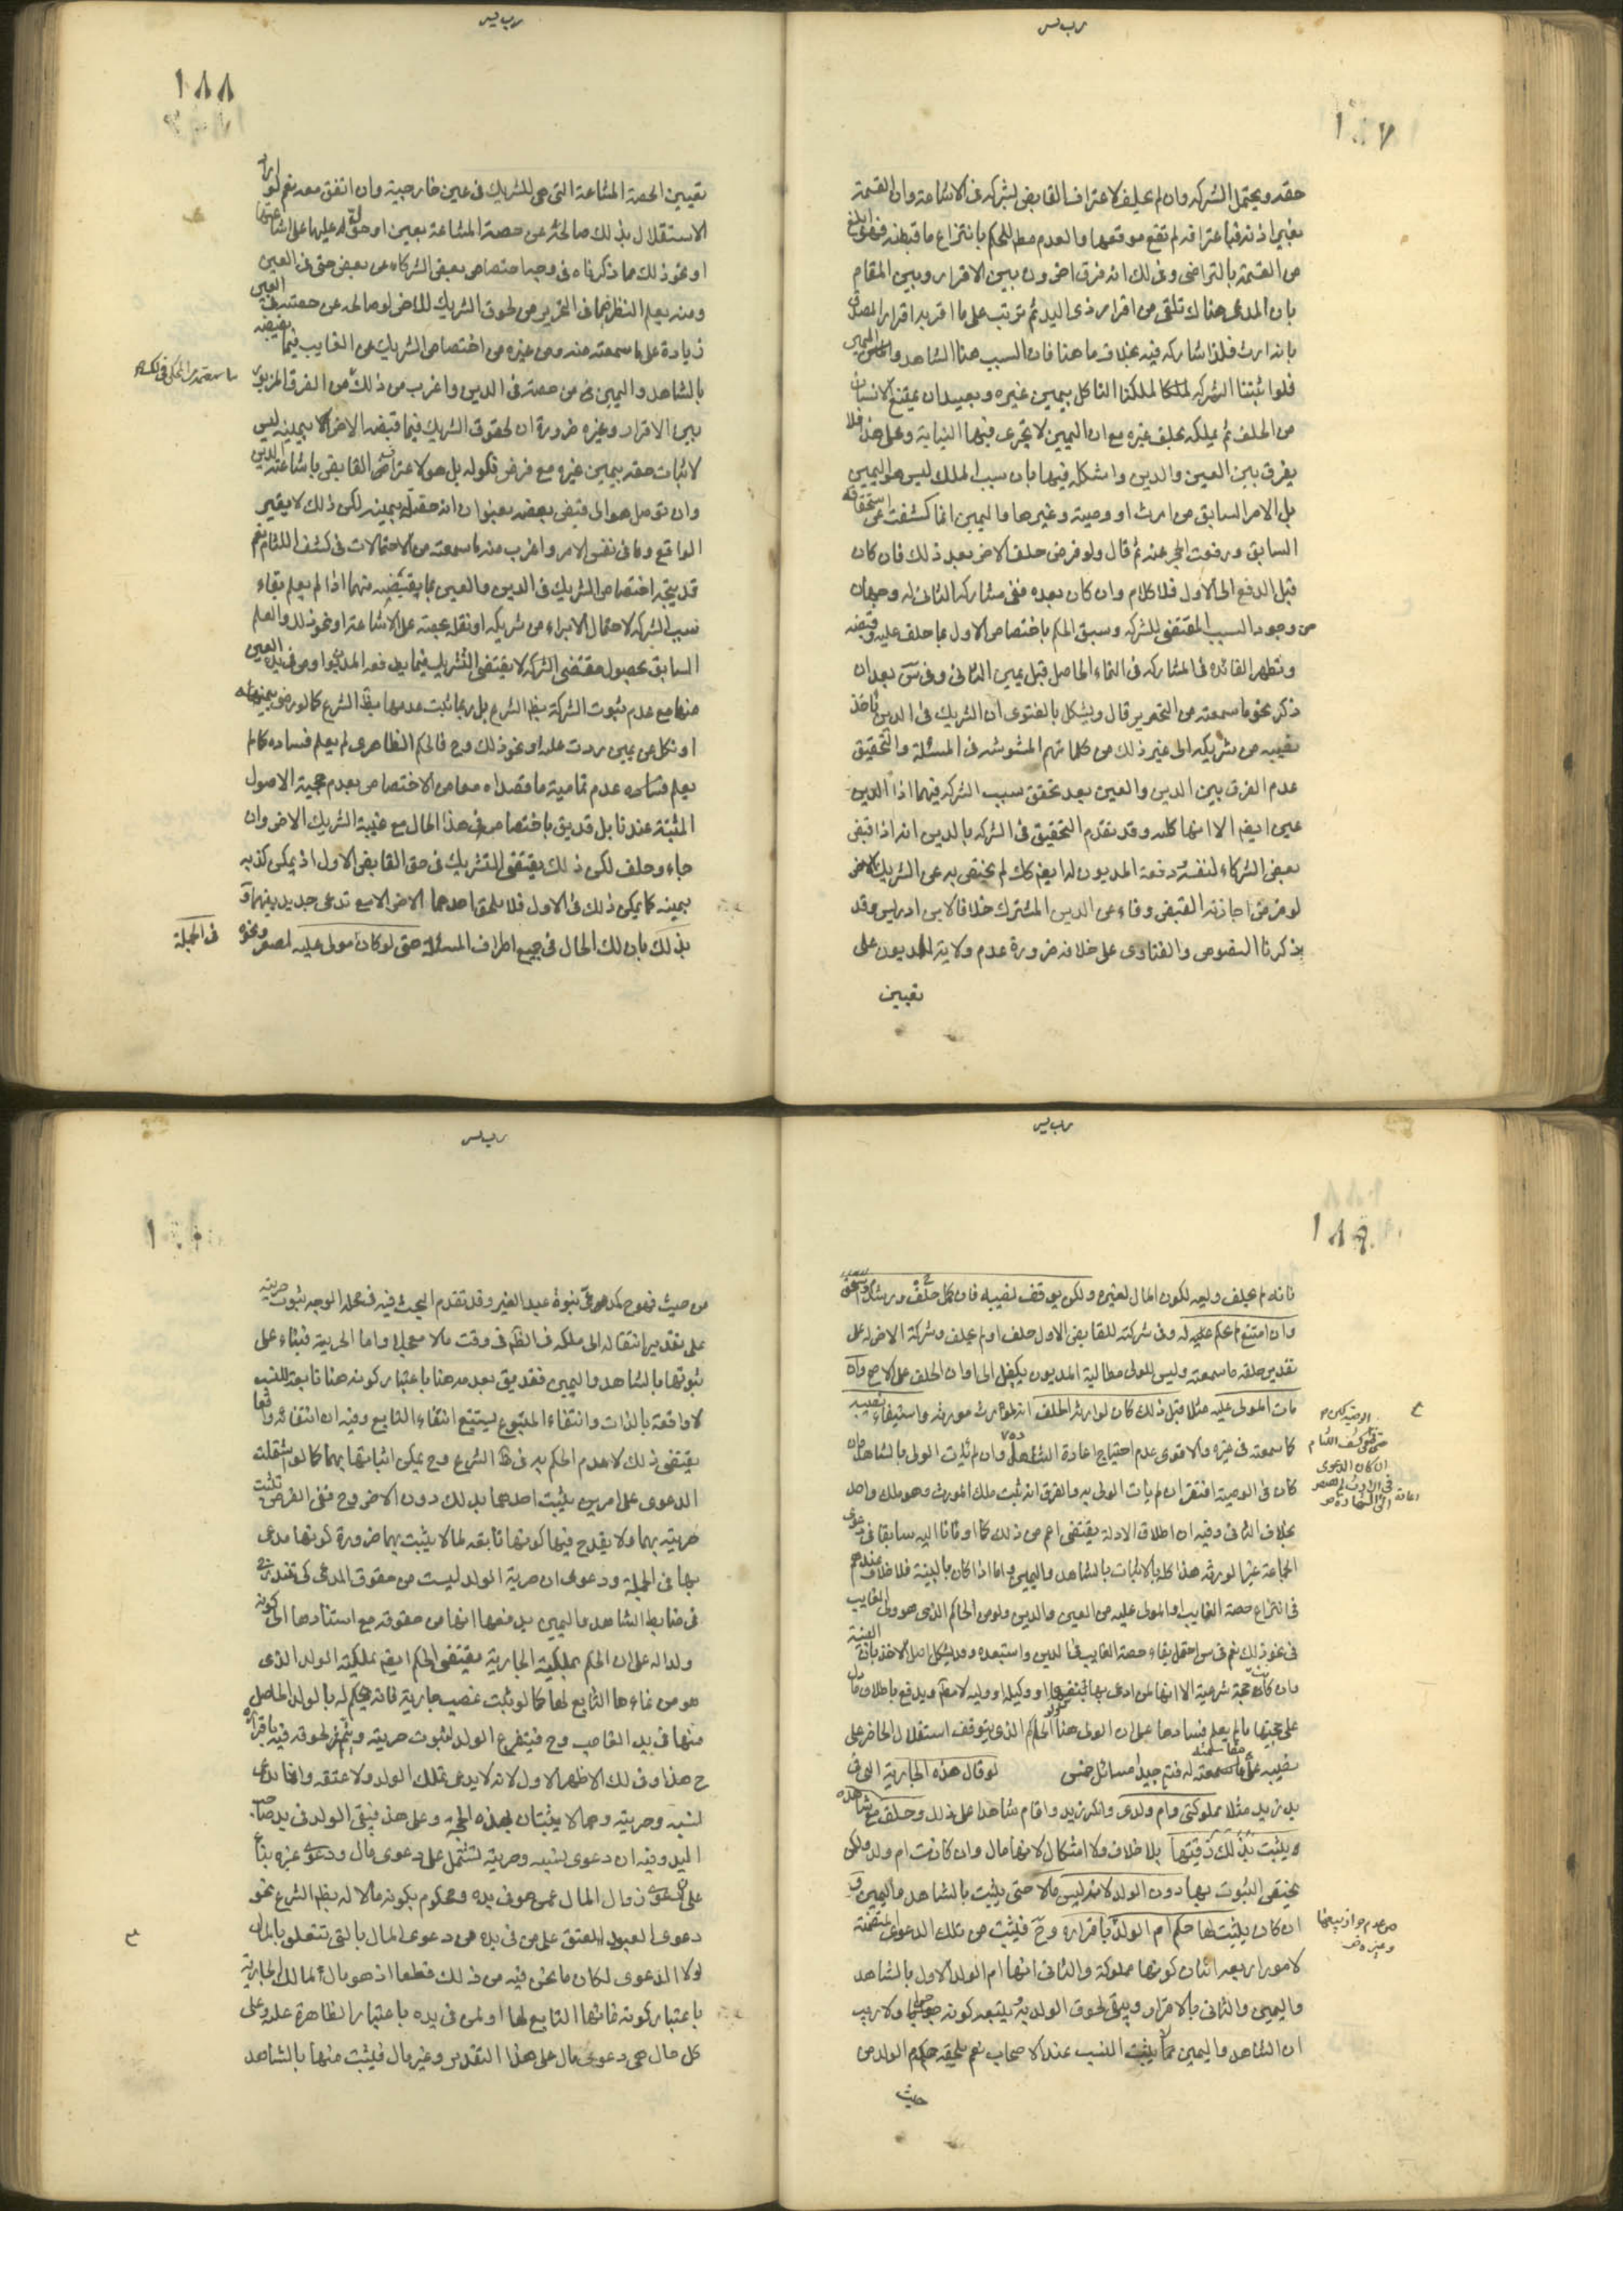 ١٨٧
حقه ويحتمل الشركه وان لم يحلف لاعتراف القابض بشركه في الاشاعة وان القسمة
بغير اذنه فباعترافه لم تقع موقعها والعدم حكم الحاكم بانتزاع ما قبضه
من القسمة بالتراضي وفي لك انه فرق اخر ون بين الاقرار وبين المقام
بان المدعى هناك تلقى من اقرار ذى اليد ثم ترتب على ما اقر به اقرار المصدق
بانه ارث فلذا شاركه فيه بخلاف ما هنا فان السبب هنا الشاهد واليمين
فلو اثبتنا الشركه لملكنا الناكل بيمين غيره وبعيد ان يمتنع الانسان
من الحلف ثم يملكه بحلف غيره مع ان اليمين لا يجرى فيها النيابة وعلى هذا فلا
يفرق بين العين والدين واشكله فيها بان سبب الملك ليس هو اليمين
بل الامر السابق من ارث او وصية وغيرها واليمين انما كشفت عن استحقاقه
السابق ورفعت الحجر عنه ثم قال ولو فرض حلف الاخر بعد ذلك فان كان
قبل الدفع الى الاول فلا كلام وان كان بعده ففى مشاركه الثانى له وجهان
من وجود السبب المقتضى للشركه وسبق الحكم باختصاص الاول بما حلف عليه وقبضه
وتظهر الفائده في المشاركه في النماء الحاصل قبل يمين الثانى وفى س بعد ان
ذكر نحو ما سمعته من التحرير قال ويشكل بالفتوى ان الشريك في الدين ياخذ
نصيبه من شريكه الى غير ذلك من كلماتهم المشوشه في المسئلة والتحقيق
عدم الفرق بين الدين والعين بعد تحقق سبب الشركه فيهما اذ الدين
عين ايضا الا انها كليه وقد تقدم التحقيق في الشركه بالدين انه اذا قبض
بعض الشركاء لنفسه دفعة المديون له ايضا كك لم يختص به عن الشريك الاخر
لو فرض اجازته القبض وفاء عن الدين المشترك خلافا لابن ادريس وقد
ذكرنا النصوص والفتاوى على خلافه ضرورة عدم ولاية المديون على
تعيين
١٨٨
تعيين الحصة المشاعة التى هى للشريك في عين خارجية وان اتفق معه نعم لو اراد
الاستقلال بذلك صالحه عن حصة المشاعة بعين او حق له عليها على اشاعتها
او نحو ذلك مما ذكرناه في وجه اختصاص بعض الشركاء عن بعض حتى في العين
ومنه يعلم النظر فيما في التحرير من لحوق الشريك للآخر لو صالحه عن حصته في العين
زيادة على ما سمعته منه ومن غيره من اختصاص الشريك عن الغايب فيما يقبضه
بالشاهد واليمين من حصته في الدين واغرب من ذلك من الفرق المزبور
بين الاقرار وغيره ضرورة ان لحقوق الشريك فيما قبضه الاخر لا بيمينه ليس
لاثبات حقه بيمين غيره مع فرض نكوله بل هو لاعتراف القابض باشاعته الدين
وان توصل هو الى قبض بعضه بعنوان انه حقه بيمينه لكن ذلك لا يغير
الواقع وما في نفس الامر واغرب منه ما سمعته من الاحتمالات في كشف اللثام نعم
قد يتجه اختصاص الشريك في الدين والعين بما يقبضه منهما اذا لم يعلم بقاء
سبب الشركه لاحتمال الابراء من شريكه او نقله بحصته على الاشاعة او نحو ذلك والعلم
السابق بحصول مقتضى الشركه لا يقتضى التشريك فيما يدفعه المديون او من في يده العين
منها مع عدم ثبوت الشركة بظ الشرع بل ربما ثبت عدمها بظ الشرع كما لو رضى بيمينه
او نكل عن يمين ردت عليه او نحو ذلك وح فالحكم الظاهرى لم يعلم فساده كما لم
يعلم فساده عدم تمامية ما قصداه معا من الاختصاص بعدم حجية الاصول
المثبتة عندنا بل قد يق باختصاص في هذا الحال مع غيبة الشريك الاخر وان
جاء وحلف لكن ذلك يقتضى التشريك في حق القابض الاول اذ يمكن كذبه
بيمينه كما يمكن ذلك في الاول فلا يلحق احدهما الاخر الا مع تداعى جديد بينهما
بذلك بان لك الحال في جميع اطراف المسئلة حتى لو كان مولى عليه لصغر ونحوه
في الجملة
١٨٩
فانه لم يحلف وليه لكون المال لغيره ولكن يوقف نصيبه فان كمل حلف ورشد واستحق
وان امتنع لم يحكم عليه له وفى شركته للقابض الاول حلف او لم يحلف وشركة الاخر له على
تقدير حلفه ما سمعته وليس للولى مطالبة المديون بكفيل الى اوان الحلف على الاصح وان
مات المولى عليه مثلا قبل ذلك كان لوارثه الحلف انه لمورثه واستيفاء نصيبه
كما سمعته في غيره والاقوى عدم احتياج اعادة الشاهد وان لم يثبت الولى بالشاهد وان
كان في الوصية افتقر ان لم يات الولى به والفرق انه ثبت ملك المورث وهو ملك واحد
بخلاف الثانى وفيه ان اطلاق الادلة يقتضى اعم من ذلك كما اومانا اليه سابقا في دعوى
الجماعة عينا لمورثه هذا كله بالاثبات بالشاهد واليمين واما اذا كان بالبينة فلا خلاف عندهم
في انتزاع حصة الغايب او المولى عليه من العين والدين ولو من الحاكم الذى هو ولى الغايب
في نحو ذلك نعم في س احتمل بقاء حصة الغايب في الدين واستبعده وقد يشكل اصل الاخذ بان البينة
وان كانت حجة شرعية الا انها لمن ادعى بها بنفسها او وكيله او وليه لا مط ويدفع باطلاق ما دل
على حجيتها ما لم يعلم فسادها على ان الولى هنا الحاكم الذى يتوقف استقلال الحاضر على
نصيبه على ما سمعته له فتم جيدا مسائل خمس لو قال هذه الجارية التى في
يد زيد مثلا مملوكتى وام ولدى وانكر زيد واقام شاهدا على ذلك وحلف مع شاهده
ويثبت بذلك رقيتها بلا خلاف ولا اشكال لانها مال وان كانت ام ولد ولكن
يختص الثبوت بها دون الولد لانه ليس مالا حتى يثبت بالشاهد واليمين
ان كان يثبت لها حكم ام الولد باقراره وح فيثبت من تلك الدعوى متضمنة
لامور اربعه اثنان كونها مملوكة والثانى انها ام الولد الاول بالشاهد
واليمين والثانى بالاقرار ويبقى لحوق الولد به ويتبعه كونه حرا ولا ريب
ان الشاهد واليمين مما لا يثبت النسب عند الاصحاب نعم يلحقه حكم الولد من
حيث
من عدم جواز بيعها
وغيره
من حيث
على تقدير انتقاله الى ملكه في وقت ما لا صحيحا واما الحرية فبناء على
ثبوتها بالشاهد واليمين فقد يق بعدمه هنا باعتبار كونه هنا تابعة للنسب
لا واقعة بالذات وانتفاء المتبوع يستتبع انتفاء التابع وفيه ان انتفائه واقعا
يقتضى ذلك لا عدم الحكم به في ظ الشرع وح يمكن اثباتها بهما كما لو اشتملت
الدعوى على امرين يثبت احدهما بذلك دون الاخر وح ففى الفرض تثبت
حريته بهما ولا يقدح فيها كونها تابعه لما لا يثبت بهما ضرورة كونها مدعى
بها في الجملة ودعوى ان حرية الولد ليست من حقوق المدعى كى تندرج
في ضابط الشاهد واليمين يدفعها انها من حقوقه مع استنادها الى كونه
ولدا له على ان الحكم بملكية الجارية يقتضى الحكم ايضا بملكية الولد الذى
هو من نماءها التابع لها كما لو ثبت غصب جارية فانه يحكم له بالولد الحاصل
منها في يد الغاصب وح فينتزع الولد لثبوت حريته ويتم لحوقه فيه باقراره
ح هذا وفى لك الاظهر الاول لانه لا يدعى تملك الولد ولا عتقه وانما يدعى
نسبه وحريته وهما لا يثبتان بهذه الحجة وعلى هذا فيبقى الولد في يد صاحب
اليد وفيه ان دعوى نسبه وحريته تشتمل على دعوى مال ودعوى غيره بناء
على دعوى زوال المال عمن هو في يده ومحكوم بكونه مالا له بظ الشرع نحو
دعوى العبد العتق على من في يده من دعوى المال بالتى تتعلق بالمال
لولا الدعوى لكان ما نحن فيه من ذلك قطعا اذ هو مال لمالك الجارية
باعتبار كونه نماءها التابع لها او لمن في يده باعتبار الظاهرة عليه وعلى
كل حال هى دعوى مال على هذا التقدير وغير مال فيثبت منها بالشاهد